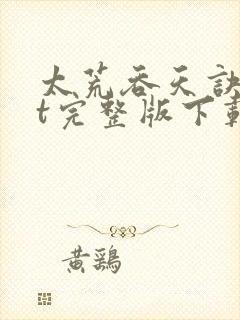 太荒吞天訣
t完整版下載
黄鷄